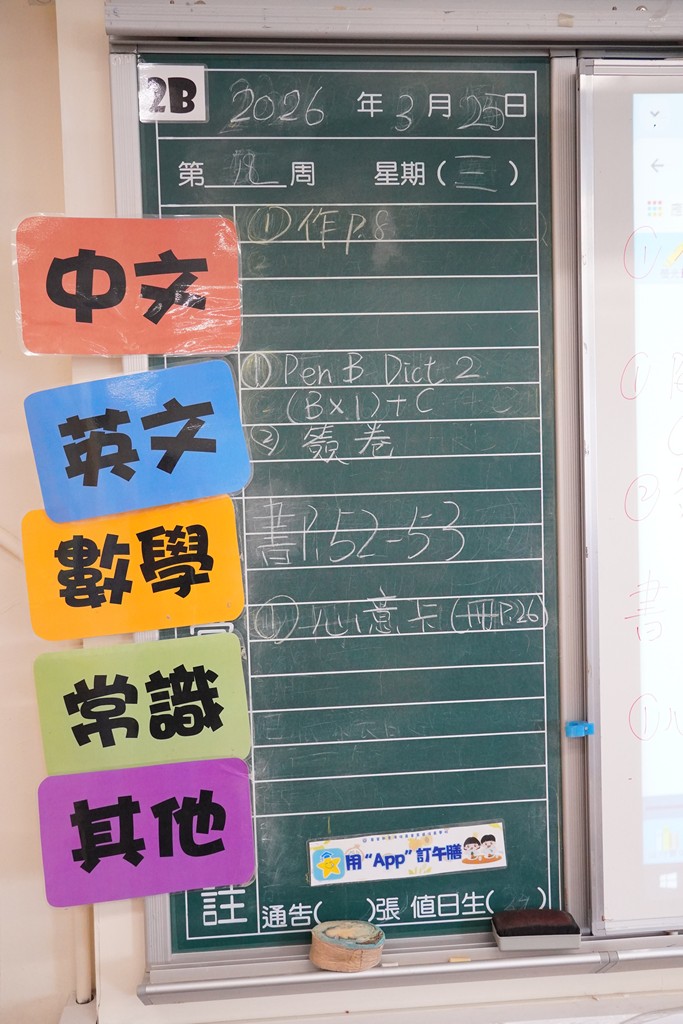 2B
2026 年 3 月 25 日
第 周 星期(三)
中文
① 作 p.8
英文
① Pen B Dict 2
(B×1)+C
② 簽卷
數學
書P.52-53
常識
① 心意卡(冊P.26)
其他
用“App”訂午膳
註 通告( )張 值日生( )
①
①
②
書
①